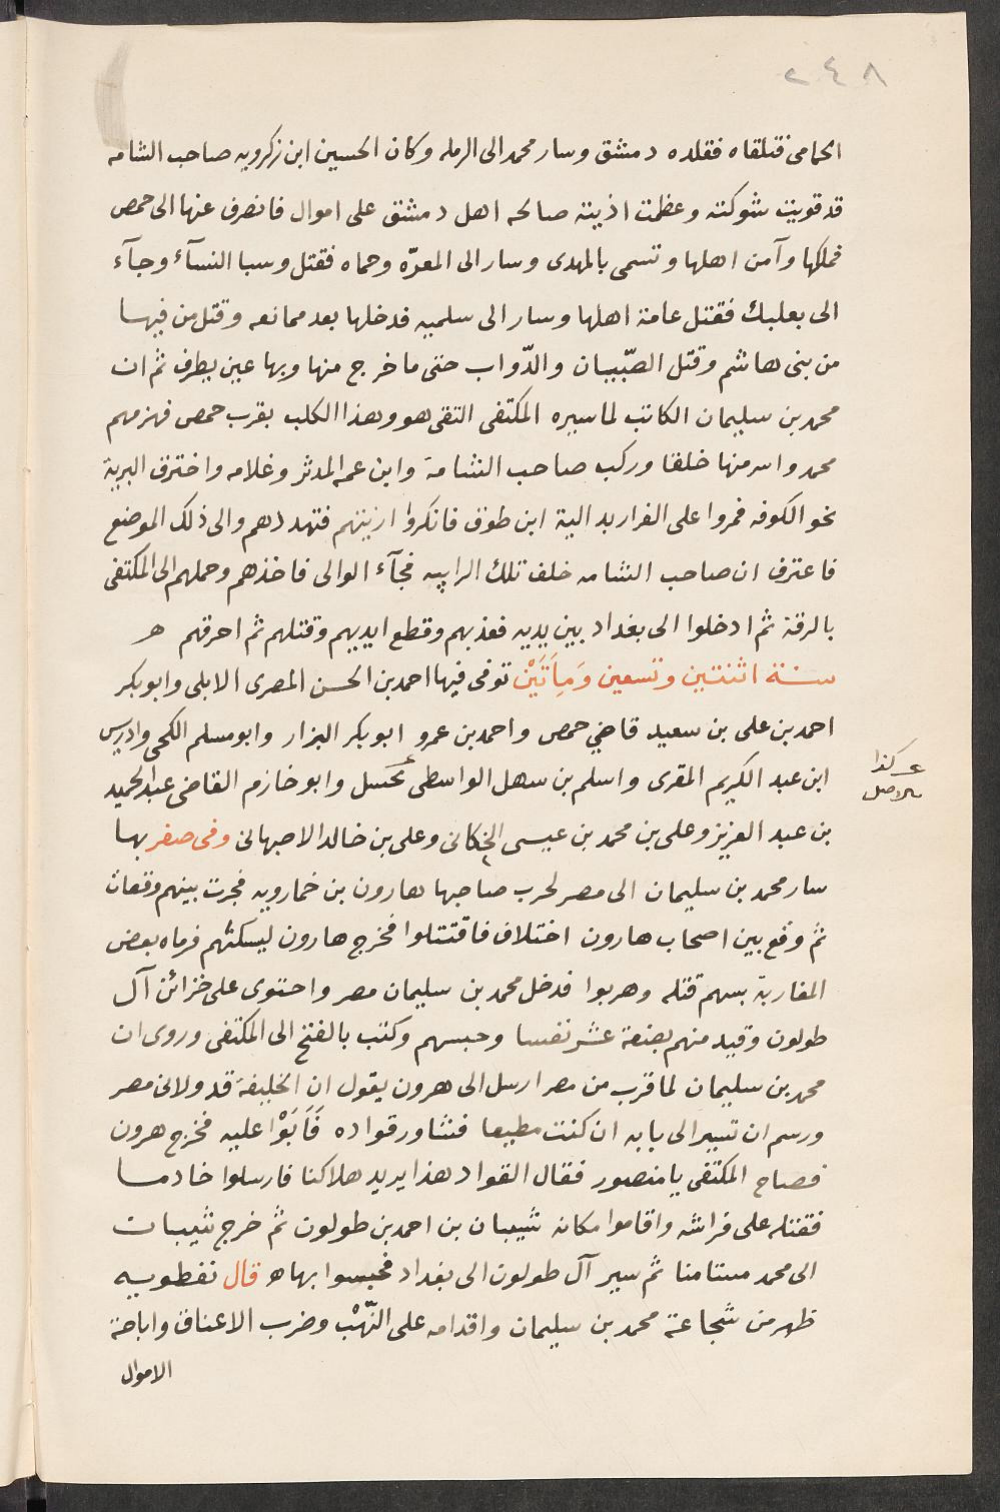 ٢٤٨
الحمامى فتلقاه فقلده دمشق وسار محمد الى الرمله وكان الحسين ابن زكرويه صاحب الشامه
قد قويت شوكته وعظمت اذيته صالحه اهل دمشق على اموال فانصرف عنها الى حمص
فملكها وآمن اهلها وتسمى بالمهدى وسار الى المعرّه وحماه فقتل وسبا النسآء وجآء
الى بعلبك فقتل عامة اهلها وسار الى سلميه فدخلها بعد ممانعه وقتل من فيها
من بنى هاشم وقتل الصّبيان والدّواب حتى ما خرج منها وبها عين بطرف ثم ان
محمد بن سليمان الكاتب لما سيره المكتفى التقى هو وهذا الكلب بقرب حمص فهزمهم
محمد واسر منها خلقا وركب صاحب الشامة وابن عمه المدثر وغلامه واخترق البرية
نحو الكوفه فمروا على الفرا بدالية ابن طوق فانكروا ازيتهم فتهددهم والى ذلك الموضع
فاعترف ان صاحب الشامه خلف تلك الرابيه فجآء الوالى فاخذهم وحملهم الى المكتفى
بالرقة ثم ادخلوا الى بغداد بين يديه فعذبهم وقطع ايديهم وقتلهم ثم احرقهم ھ
سنة اثنتين وتسعين وَمِأتَيْن توفى فيها احمد بن الحسن المصرى الابلى وابو بكر
احمد بن على بن سعيد قاضي حمص واحمد بن عمرو ابو بكر البزار وابو مسلم الكجى وادريس
ابن عبد الكريم المقرى واسلم بن سهل الواسطى بحسل وابو خازم القاضى عبد الحميد
كذا
بالاصل
بن عبد العزيز وعلى بن محمد بن عيسى الحكانى وعلى بن خالد الاصبهانى وفى صفر بها
سار محمد بن سليمان الى مصر لحرب صاحبها هارون بن خمارويه فجرت بينهم وقعات
ثم وقع بين اصحاب هارون اختلاف فاقتتلوا فخرج هارون ليسكتهم فرماه بعض
المغاربة بسهم قتله وهربوا فدخل محمد بن سليمان مصر واحتوى على خزائن آل
طولون وقيد منهم بضعة عشر نفسا وحبسهم وكتب بالفتح الى المكتفى وروى ان
محمد بن سليمان لما قرب من مصر ارسل الى هرون يقول ان الخليفةَ قد ولانى مصر
ورسم ان تسير الى بابه ان كنت مطيعا فشاور قواده فَأَبَوْا عليه فخرج هرون
فصاح المكتفى يا منصور فقال القواد هذا يريد هلاكنا فارسلوا خادما
فقتله على فراشه واقاموا مكانه شيبان بن احمد بن طولون ثم خرج شيبان
الى محمد مستامنا ثم سير آل طولون الى بغداد فحبسوا بها ھ قال نفطويه
ظهر من شجاعة محمد بن سليمان واقدامه على النّهْب وضرب الاعناق واباحة
الاموال